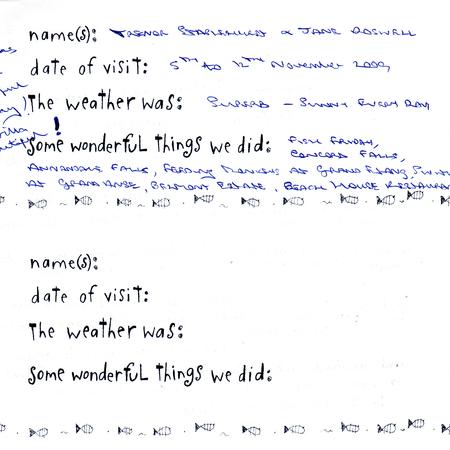 name(s): TREVOR STAPLEHURST & JANE BOSWELL
date of visit: 5TH TO 12TH NOVEMBER 2009
The weather was: SUPERB - SUNNY EVERY DAY
!
Some wonderful things we did: FISH FRIDAY,
CONCORD FALLS,
ANNANDALE FALLS, FEEDING MONKEYS AT GRAND ETANG,
AT GRAND ANSE, BELMONT ESTATE, BEACH HOUSE RESTAURAN
name(s):
date of visit:
The weather was:
Some wonderful things we did: